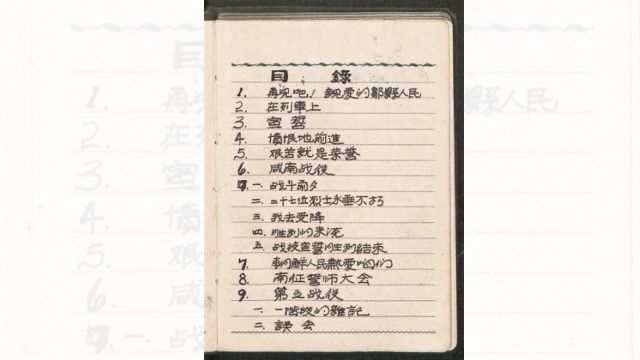 目 錄
1. 再见吧！親爱的鄒縣人民
2. 在列車上
3. 宣誓
4. 憤恨地前進
5. 艰苦就是荣誉
6. 咸南战役
一. 战斗前夕
二. 二十七位烈士永垂不朽
三. 我去受降
四. 胜利的来泥
五. 战役宣誓胜利结束
7. 朝鮮人民熱愛咱们
8. 南征誓师大会
9. 第五战役
一. 一階段的雜記
二. 誤会